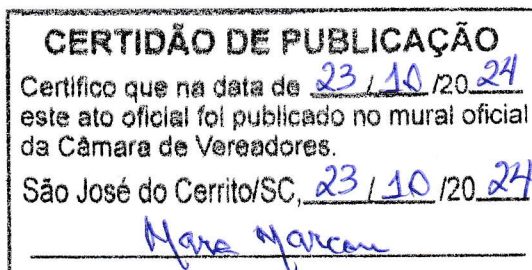 CERTIDÃO DE PUBLICAÇÃO
Certifico que na data de 23/10/2024
este ato oficial foi publicado no mural oficial
da Câmara de Vereadores.
São José do Cerrito/SC, 23/10/2024